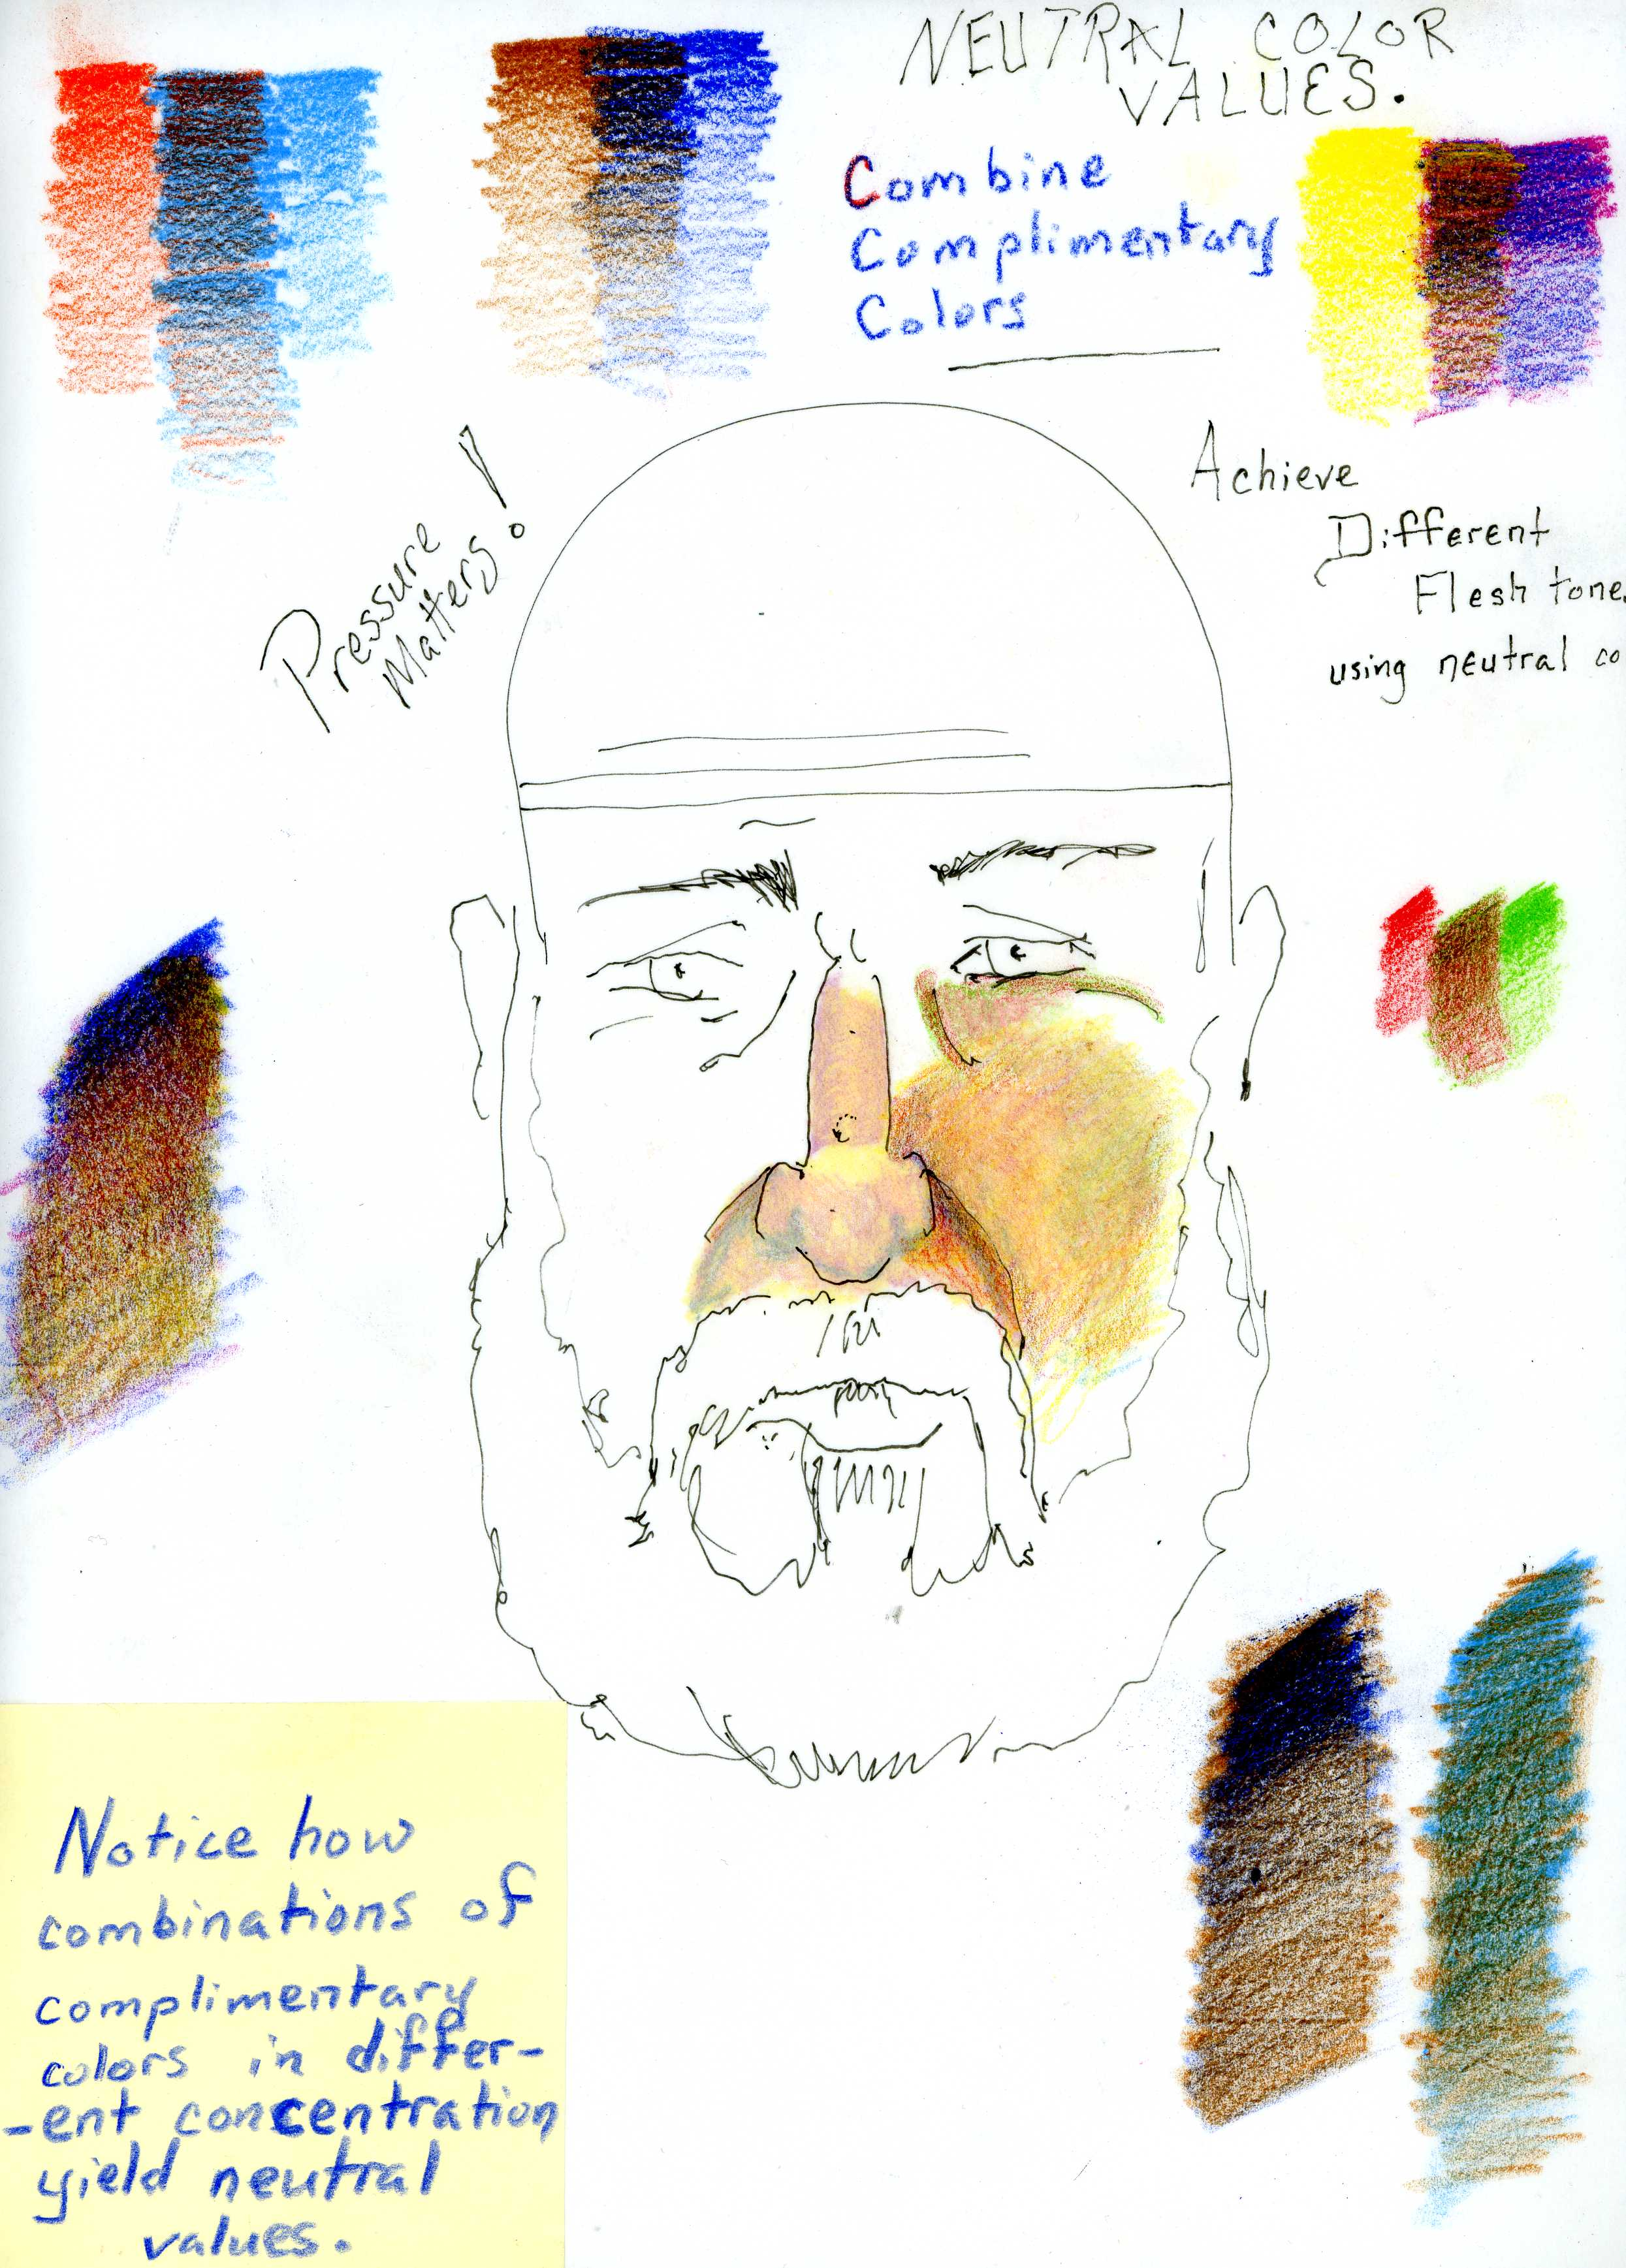 NEUTRAL COLOR
VALUES.
Combine
Complimentary
Colors
Pressure
Matters!
Achieve
Different
Flesh tone
using neutral co
Notice how
combinations of
complimentary
colors in differ-
-ent concentration
yield neutral
values.